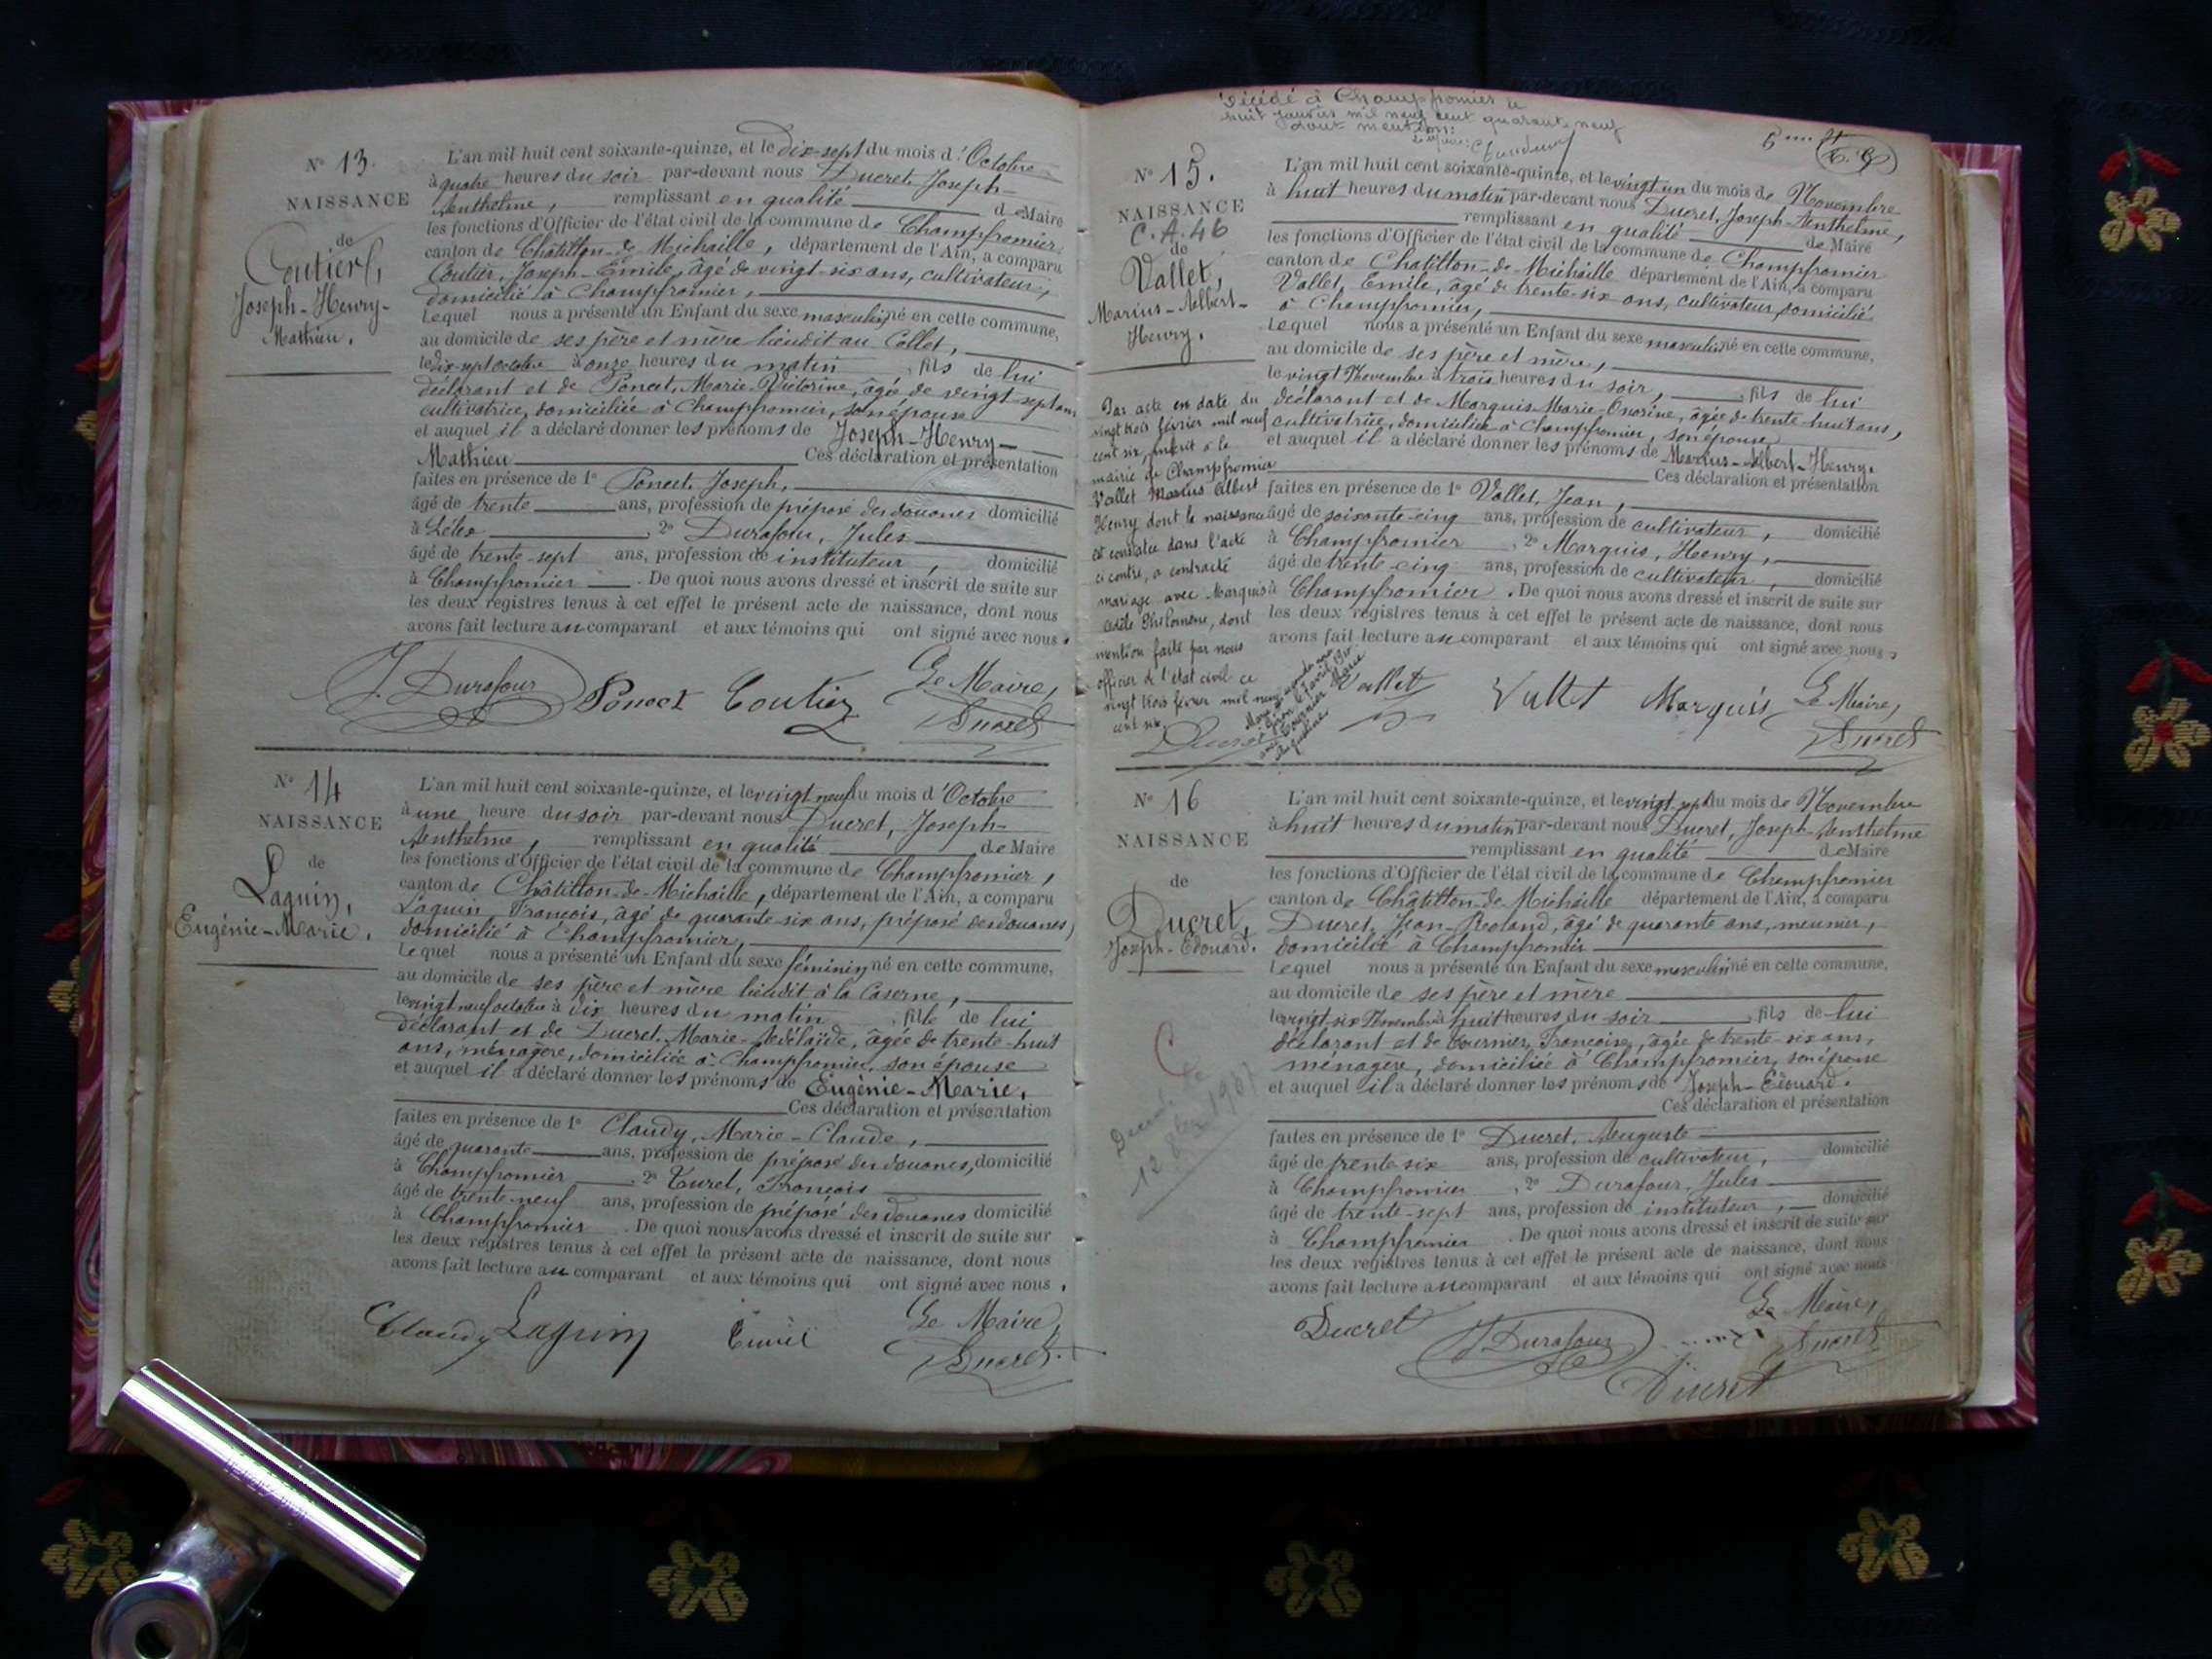 N° 13.
NAISSANCE
de
Coutier,
Joseph-Henry-
Mathieu.
L'an mil huit cent soixante-quinze, et le dix-sept du mois d'Octobre
à quatre heures du soir par-devant nous Ducret, Joseph-
Anthelme, remplissant en qualité de Maire
les fonctions d'Officier de l'état civil de la commune de Champfromier
canton de Châtillon-de-Michaille, département de l'Ain, a comparu
Coutier, Joseph-Emile, âgé de vingt-six ans, cultivateur,
domicilié à Champfromier,
Lequel nous a présenté un Enfant du sexe masculin né en cette commune,
au domicile de ses père et mère lieudit au Collet,
le dix-sept octobre à onze heures du matin, fils de lui
déclarant et de Poncet, Marie-Victorine, âgée de vingt-sept ans
cultivatrice, domiciliée à Champfromier, son épouse
et auquel il a déclaré donner les prénoms de Joseph-Henry-
Mathieu Ces déclaration et présentation
faites en présence de 1° Poncet, Joseph,
âgé de trente ans, profession de préposé des douanes domicilié
à Lélex, 2° Durafour, Jules
âgé de trente-sept ans, profession de instituteur, domicilié
à Champfromier. De quoi nous avons dressé et inscrit de suite sur
les deux registres tenus à cet effet le présent acte de naissance, dont nous
avons fait lecture au comparant et aux témoins qui ont signé avec nous.
J. Durafour Poncet Coutier Le Maire,
Ducret
N° 14
NAISSANCE
de
Laguin,
Eugénie-Marie.
L'an mil huit cent soixante-quinze, et le vingt neuf du mois d'Octobre
à une heure du soir par-devant nous Ducret, Joseph-
Anthelme, remplissant en qualité de Maire
les fonctions d'Officier de l'état civil de la commune de Champfromier,
canton de Châtillon-de-Michaille, département de l'Ain, a comparu
Laguin François, âgé de quarante-six ans, préposé des douanes,
domicilié à Champfromier,
Lequel nous a présenté un Enfant du sexe féminin né en cette commune,
au domicile de ses père et mère lieudit à la Caserne,
le vingt neuf octobre à dix heures du matin, fille de lui
déclarant et de Ducret, Marie-Adélaïde, âgée de trente-huit
ans, ménagère, domiciliée à Champfromier, son épouse
et auquel il a déclaré donner les prénoms de Eugénie-Marie.
Ces déclaration et présentation
faites en présence de 1° Claudy, Marie-Claude,
âgé de quarante ans, profession de préposé des douanes, domicilié
à Champfromier, 2° Turel, François
âgé de trente-neuf ans, profession de préposé des douanes domicilié
à Champfromier. De quoi nous avons dressé et inscrit de suite sur
les deux registres tenus à cet effet le présent acte de naissance, dont nous
avons fait lecture au comparant et aux témoins qui ont signé avec nous.
Claudy Laguin Turel Le Maire,
Ducret.
Décédé à Champfromier le
huit janvier mil neuf cent quarante neuf
dont mention:
N° 15.
NAISSANCE
C.A. 46
de
Vallet,
Marius-Albert-
Henry.
Par acte en date du
vingt trois février mil neuf
cent six, inscrit à la
mairie de Champfromier
Vallet Marius Albert
Henry dont la naissance
est constatée dans l'acte
ci contre, a contracté
mariage avec Marquis
Adèle Philomène, dont
mention faite par nous
officier de l'état civil ce
vingt trois février mil neuf
cent six.
Ducret
L'an mil huit cent soixante-quinze, et le vingt un du mois de Novembre
à huit heures du matin par-devant nous Ducret, Joseph-Anthelme,
remplissant en qualité de Maire
les fonctions d'Officier de l'état civil de la commune de Champfromier
canton de Chatillon-de-Michaille département de l'Ain, a comparu
Vallet, Emile, âgé de trente-six ans, cultivateur, domicilié
à Champfromier,
Lequel nous a présenté un Enfant du sexe masculin né en cette commune,
au domicile de ses père et mère,
le vingt Novembre à trois heures du soir, fils de lui
déclarant et de Marquis Marie-Onorine, âgée de trente-huit ans,
cultivatrice, domiciliée à Champfromier, son épouse
et auquel il a déclaré donner les prénoms de Marius-Albert-Henry.
Ces déclaration et présentation
faites en présence de 1° Vallet, Jean,
âgé de soixante-cinq ans, profession de cultivateur, domicilié
à Champfromier, 2° Marquis, Henry,
âgé de trente-cinq ans, profession de cultivateur, domicilié
à Champfromier. De quoi nous avons dressé et inscrit de suite sur
les deux registres tenus à cet effet le présent acte de naissance, dont nous
avons fait lecture au comparant et aux témoins qui ont signé avec nous.
Vallet Vallet Marquis Le Maire,
Ducret
N° 16
NAISSANCE
de
Ducret,
Joseph-Edouard.
C
12 8bre 1907
L'an mil huit cent soixante-quinze, et le vingt-sept du mois de Novembre
à huit heures du matin par-devant nous Ducret, Joseph Anthelme
remplissant en qualité de Maire
les fonctions d'Officier de l'état civil de la commune de Champfromier
canton de Châtillon-de-Michaille département de l'Ain, a comparu
Ducret, Jean-Roland, âgé de quarante ans, meunier,
domicilié à Champfromier
Lequel nous a présenté un Enfant du sexe masculin né en cette commune,
au domicile de ses père et mère
le vingt-six Novembre à huit heures du soir, fils de lui
déclarant et de Tournier, Françoise, âgée de trente-six ans,
ménagère, domiciliée à Champfromier, son épouse
et auquel il a déclaré donner les prénoms de Joseph-Edouard.
Ces déclaration et présentation
faites en présence de 1° Ducret, Auguste
âgé de trente six ans, profession de cultivateur, domicilié
à Champfromier, 2° Durafour, Jules
âgé de trente-sept ans, profession de instituteur, domicilié
à Champfromier. De quoi nous avons dressé et inscrit de suite sur
les deux registres tenus à cet effet le présent acte de naissance, dont nous
avons fait lecture au comparant et aux témoins qui ont signé avec nous
Ducret J. Durafour Le Maire,
Ducret
Ducret